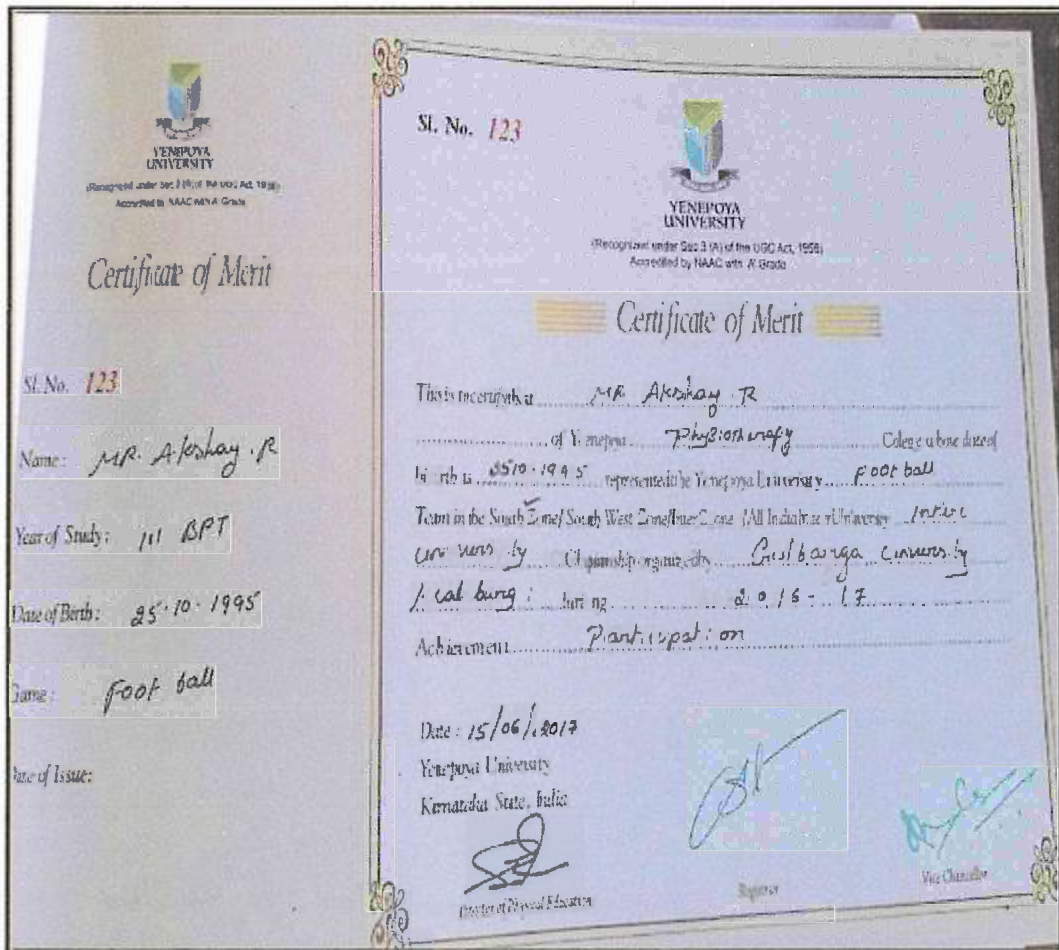 YENEPOYA
UNIVERSITY
(Recognized under Sec 3 (A) of the UGC Act, 1956)
Accredited by NAAC with 'A' Grade
Certificate of Merit
Sl. No. 123
Name: MR. Akshay . R
Year of Study: III BPT
Date of Birth: 25.10.1995
Game: Foot ball
Date of Issue:
Sl. No. 123
YENEPOYA
UNIVERSITY
(Recognized under Sec 3 (A) of the UGC Act, 1956)
Accredited by NAAC with 'A' Grade
Certificate of Merit
This is to certify that MR Akshay . R
of Yenepoya Physiotherapy College whose date of
birth is 25 10 . 1995 represented the Yenepoya University Foot ball
Team in the South Zone/ South West Zone/Inter Zone /All India Inter University Inter
university Championship organized by Gulbarga university
during 2016 - 17
Achievement Participation
Date : 15/06/2017
Yenepoya University
Karnataka State, India
Director of Physical Education
Registrar
Vice Chancellor